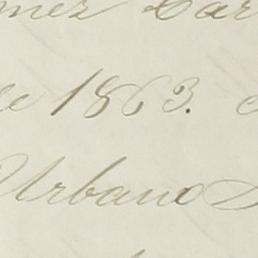 mez Car
de 1863.
Urbano